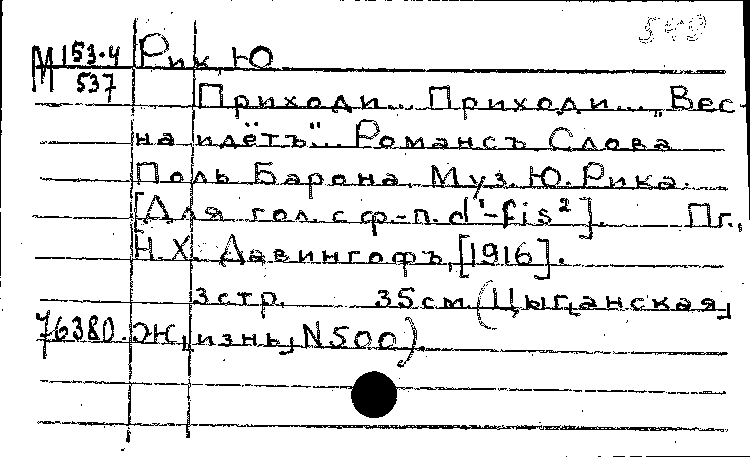 549
М 153-4 Рик, Ю
537
Приходи... Приходи... „Вес-
на идётъ"... Романсъ Слова
Поль Барона. Муз. Ю. Рика.
[Для гол. с ф.-п. d¹-fis²]. Пг.,
Н.Х. Давингофъ, [1916].
3 стр. 35 см (Цыганская
76380. жизнь, N 500).